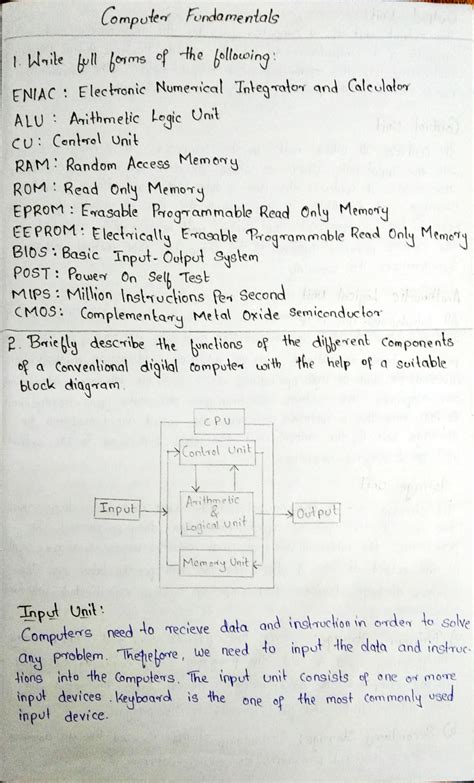 Computer Fundamentals
1. Write full forms of the following:
ENIAC : Electronic Numerical Integrator and Calculator
ALU : Arithmetic Logic Unit
CU : Control Unit
RAM : Random Access Memory
ROM : Read Only Memory
EPROM : Erasable Programmable Read Only Memory
EEPROM : Electrically Erasable Programmable Read Only Memory
BIOS : Basic Input-Output System
POST : Power On Self Test
MIPS : Million Instructions Per Second
CMOS : Complementary Metal Oxide Semiconductor
2. Briefly describe the functions of the different components
of a conventional digital computer with the help of a suitable
block diagram.
CPU
Control Unit
Input
Arithmetic
&
Logical Unit
Output
Memory Unit
Input Unit:
Computers need to recieve data and instruction in order to solve
any problem. Therefore, we need to input the data and instruc-
tions into the computers. The input unit consists of one or more
input devices. Keyboard is the one of the most commonly used
input device.